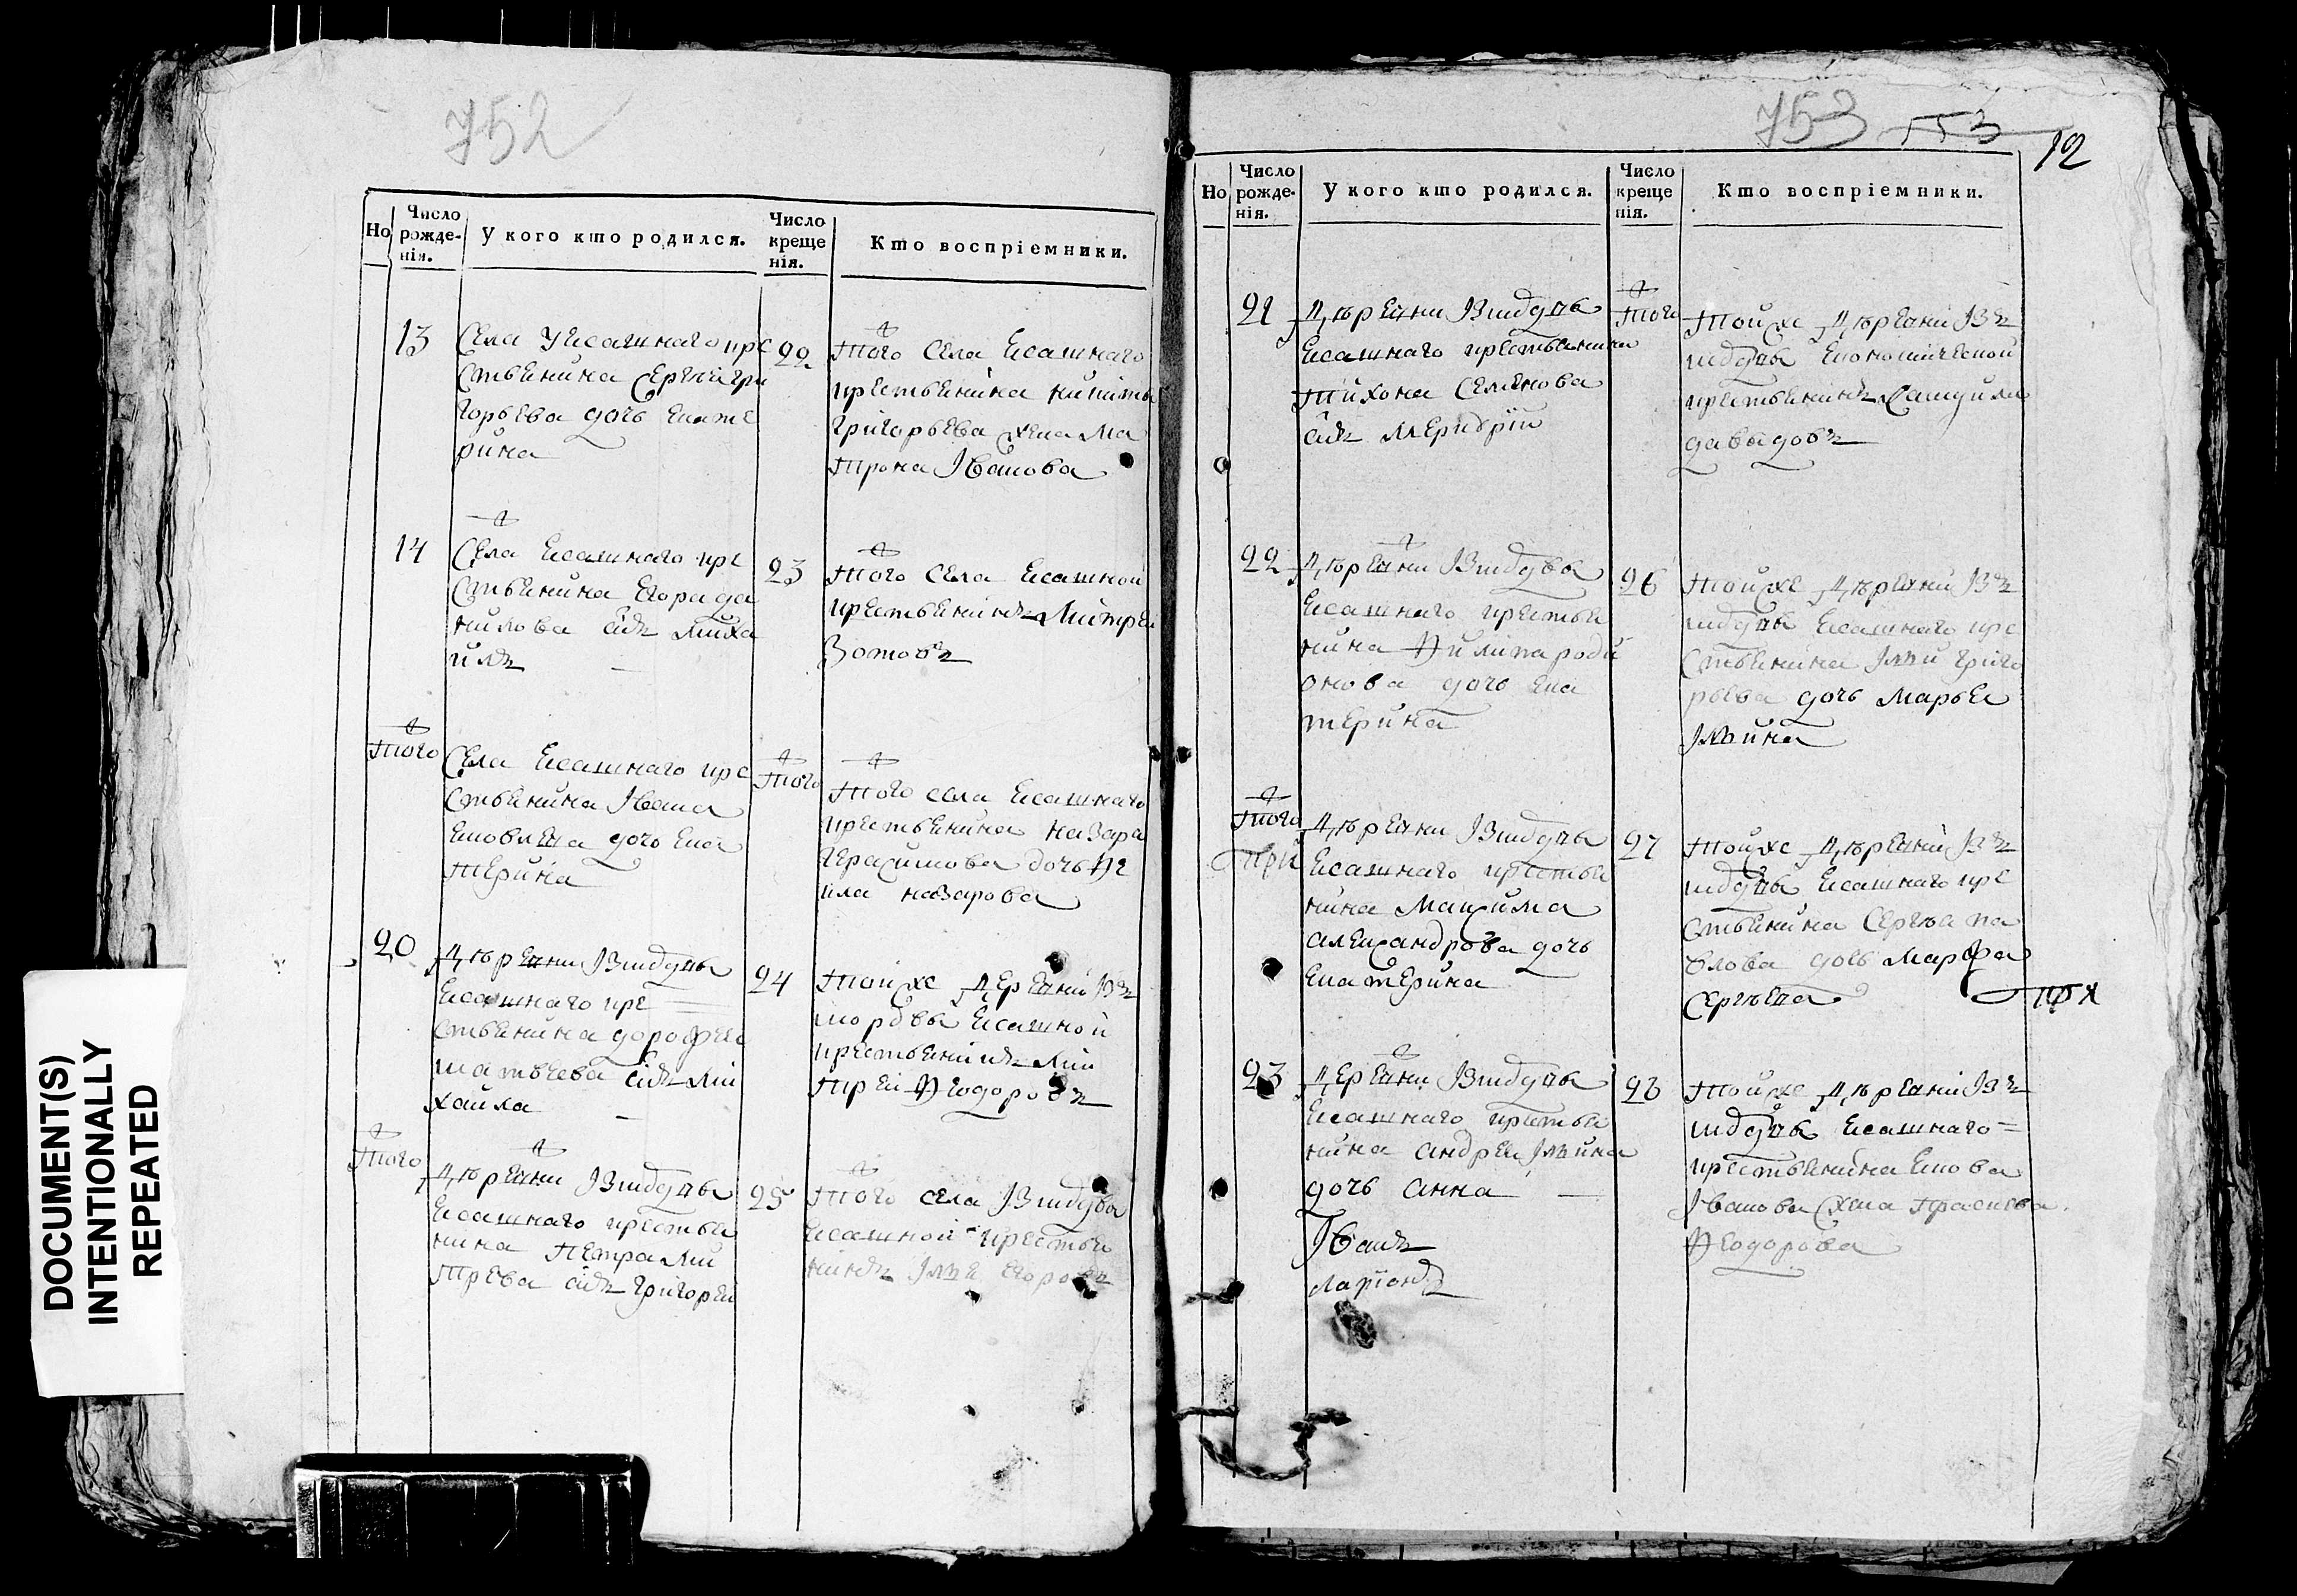 752
Но
Число рожденія.
У кого кто родился.
Число крещенія.
Кто воспріемники.
13
Села Уясашнаго кре
стьянина Сергѣя гри
горьева дочь Екате
рина
22
Того села Ясашнаго
крестьянина никиты
григорьева жена Ма
трона Іванова
14
Села Ясашнаго кре
стьянина Егора да
нилова сынъ Миха
илъ
23
Того села Ясашной
крестьянинъ Митрей
Зотовъ
Того
Села Ясашнаго кре
стьянина Ивана
Яковлева дочь Ека
терина
Того
Того села Ясашнаго
крестьянина назара
герасимова дочь
назарова
20
Дѣревни
Ясашнаго кре
стьянина дорофея
матвеева сынъ Ми
хайла
24
Тойже Деревни
Ясашной
крестьянинъ Ми
трей Ѳеодоровъ
Того
Дѣревни
Ясашнаго крестья
нина Петра Ми
трева сынъ григорей
25
Того села
Ясашной крестья
нинъ Егоровъ
753
553
12
Но
Число рожденія.
У кого кто родился.
Число крещенія.
Кто воспріемники.
21
Дѣревни
Ясашнаго крестьянина
Тихона Семенова
сынъ
Того
Тойже Дѣревни
Економической
крестьянинъ Самуила
давыдовъ
22
Дѣревни
Ясашнаго крестья
нина Филипа роди
онова дочь Ека
терина
26
Тойже Дѣревни
Ясашнаго кре
стьянина Ильи григо
рьева дочь Марья
Ильина
Того
Дѣревни
Ясашнаго крестья
нина Максима
александрова дочь
Екатерина
27
Тойже Дѣревни
Ясашнаго кре
стьянина Сергѣа па
влова дочь Марфа
Сергѣева
23
Деревни
Ясашнаго крестья
нина андрея Ильина
дочь анна
Іванъ
28
Тойже Дѣревни
Ясашнаго
крестьянина Якова
Іванова жена Прасковья
Ѳеодорова
DOCUMENT(S)
INTENTIONALLY
REPEATED